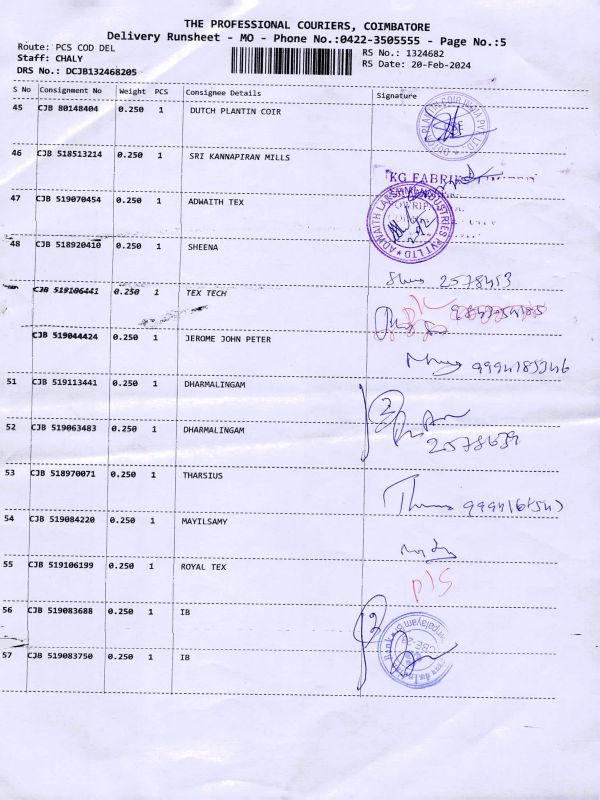 THE PROFESSIONAL COURIERS, COIMBATORE
Delivery Runsheet - MO - Phone No.:0422-3505555 - Page No.:5
Route: PCS COD DEL
RS No.: 1324682
Staff: CHALY
RS Date: 20-Feb-2024
DRS No.: DCJB132468205
S No Consignment No Weight PCS Consignee Details Signature
45 CJB 80148404 0.250 1 DUTCH PLANTIN COIR
46 CJB 518513214 0.250 1 SRI KANNAPIRAN MILLS
KG FABRIKS
47 CJB 519070454 0.250 1 ADWAITH TEX
ADWAITH LAKSHMI INDUSTRIES PVT LTD
48 CJB 518920410 0.250 1 SHEENA
2578453
CJB 519106441 0.250 1 TEX TECH
CJB 519044424 0.250 1 JEROME JOHN PETER
51 CJB 519113441 0.250 1 DHARMALINGAM
52 CJB 519063483 0.250 1 DHARMALINGAM
53 CJB 518970071 0.250 1 THARSIUS
54 CJB 519084220 0.250 1 MAYILSAMY
55 CJB 519106199 0.250 1 ROYAL TEX
P/S
56 CJB 519083688 0.250 1 IB
57 CJB 519083750 0.250 1 IB